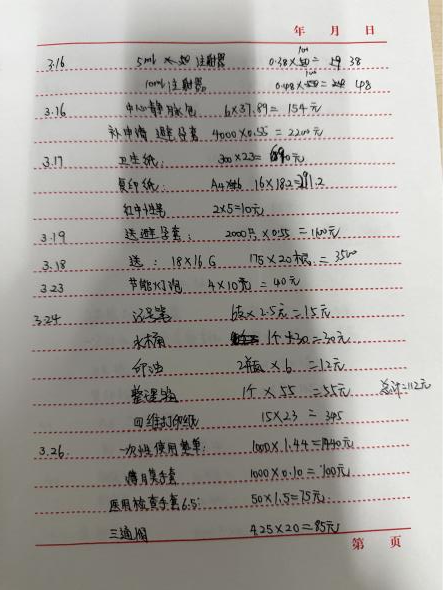 年 月 日
3.16 5ml 注射器 0.38×100= 38
10ml注射器 0.48×100= 48
3.16 中心静脉包 6×37.89= 154元
补申请 避孕套 4000×0.55= 2200元
3.17 卫生纸: 300×23= 690元
复印纸: A4 16×18.2=291.2
红中性笔 2×5=10元
3.19 送避孕套: 2000只×0.55 =1100元
3.18 送: 18×16G 175×20根 = 3500
3.23 节能灯泡 4×10元 =40元
3.24 记号笔 6支×2.5元=15元
水桶 1个×30=30元
印油 2瓶×6 =12元
整理箱 1个×55 =55元 总计=112元
四维打印纸 15×23 = 345
3.26 一次性使用垫单: 1000×1.44=1440元
薄膜手套 1000×0.10=100元
医用检查手套6.5: 50×1.5=75元
三通阀 4.25×20=85元
第 页